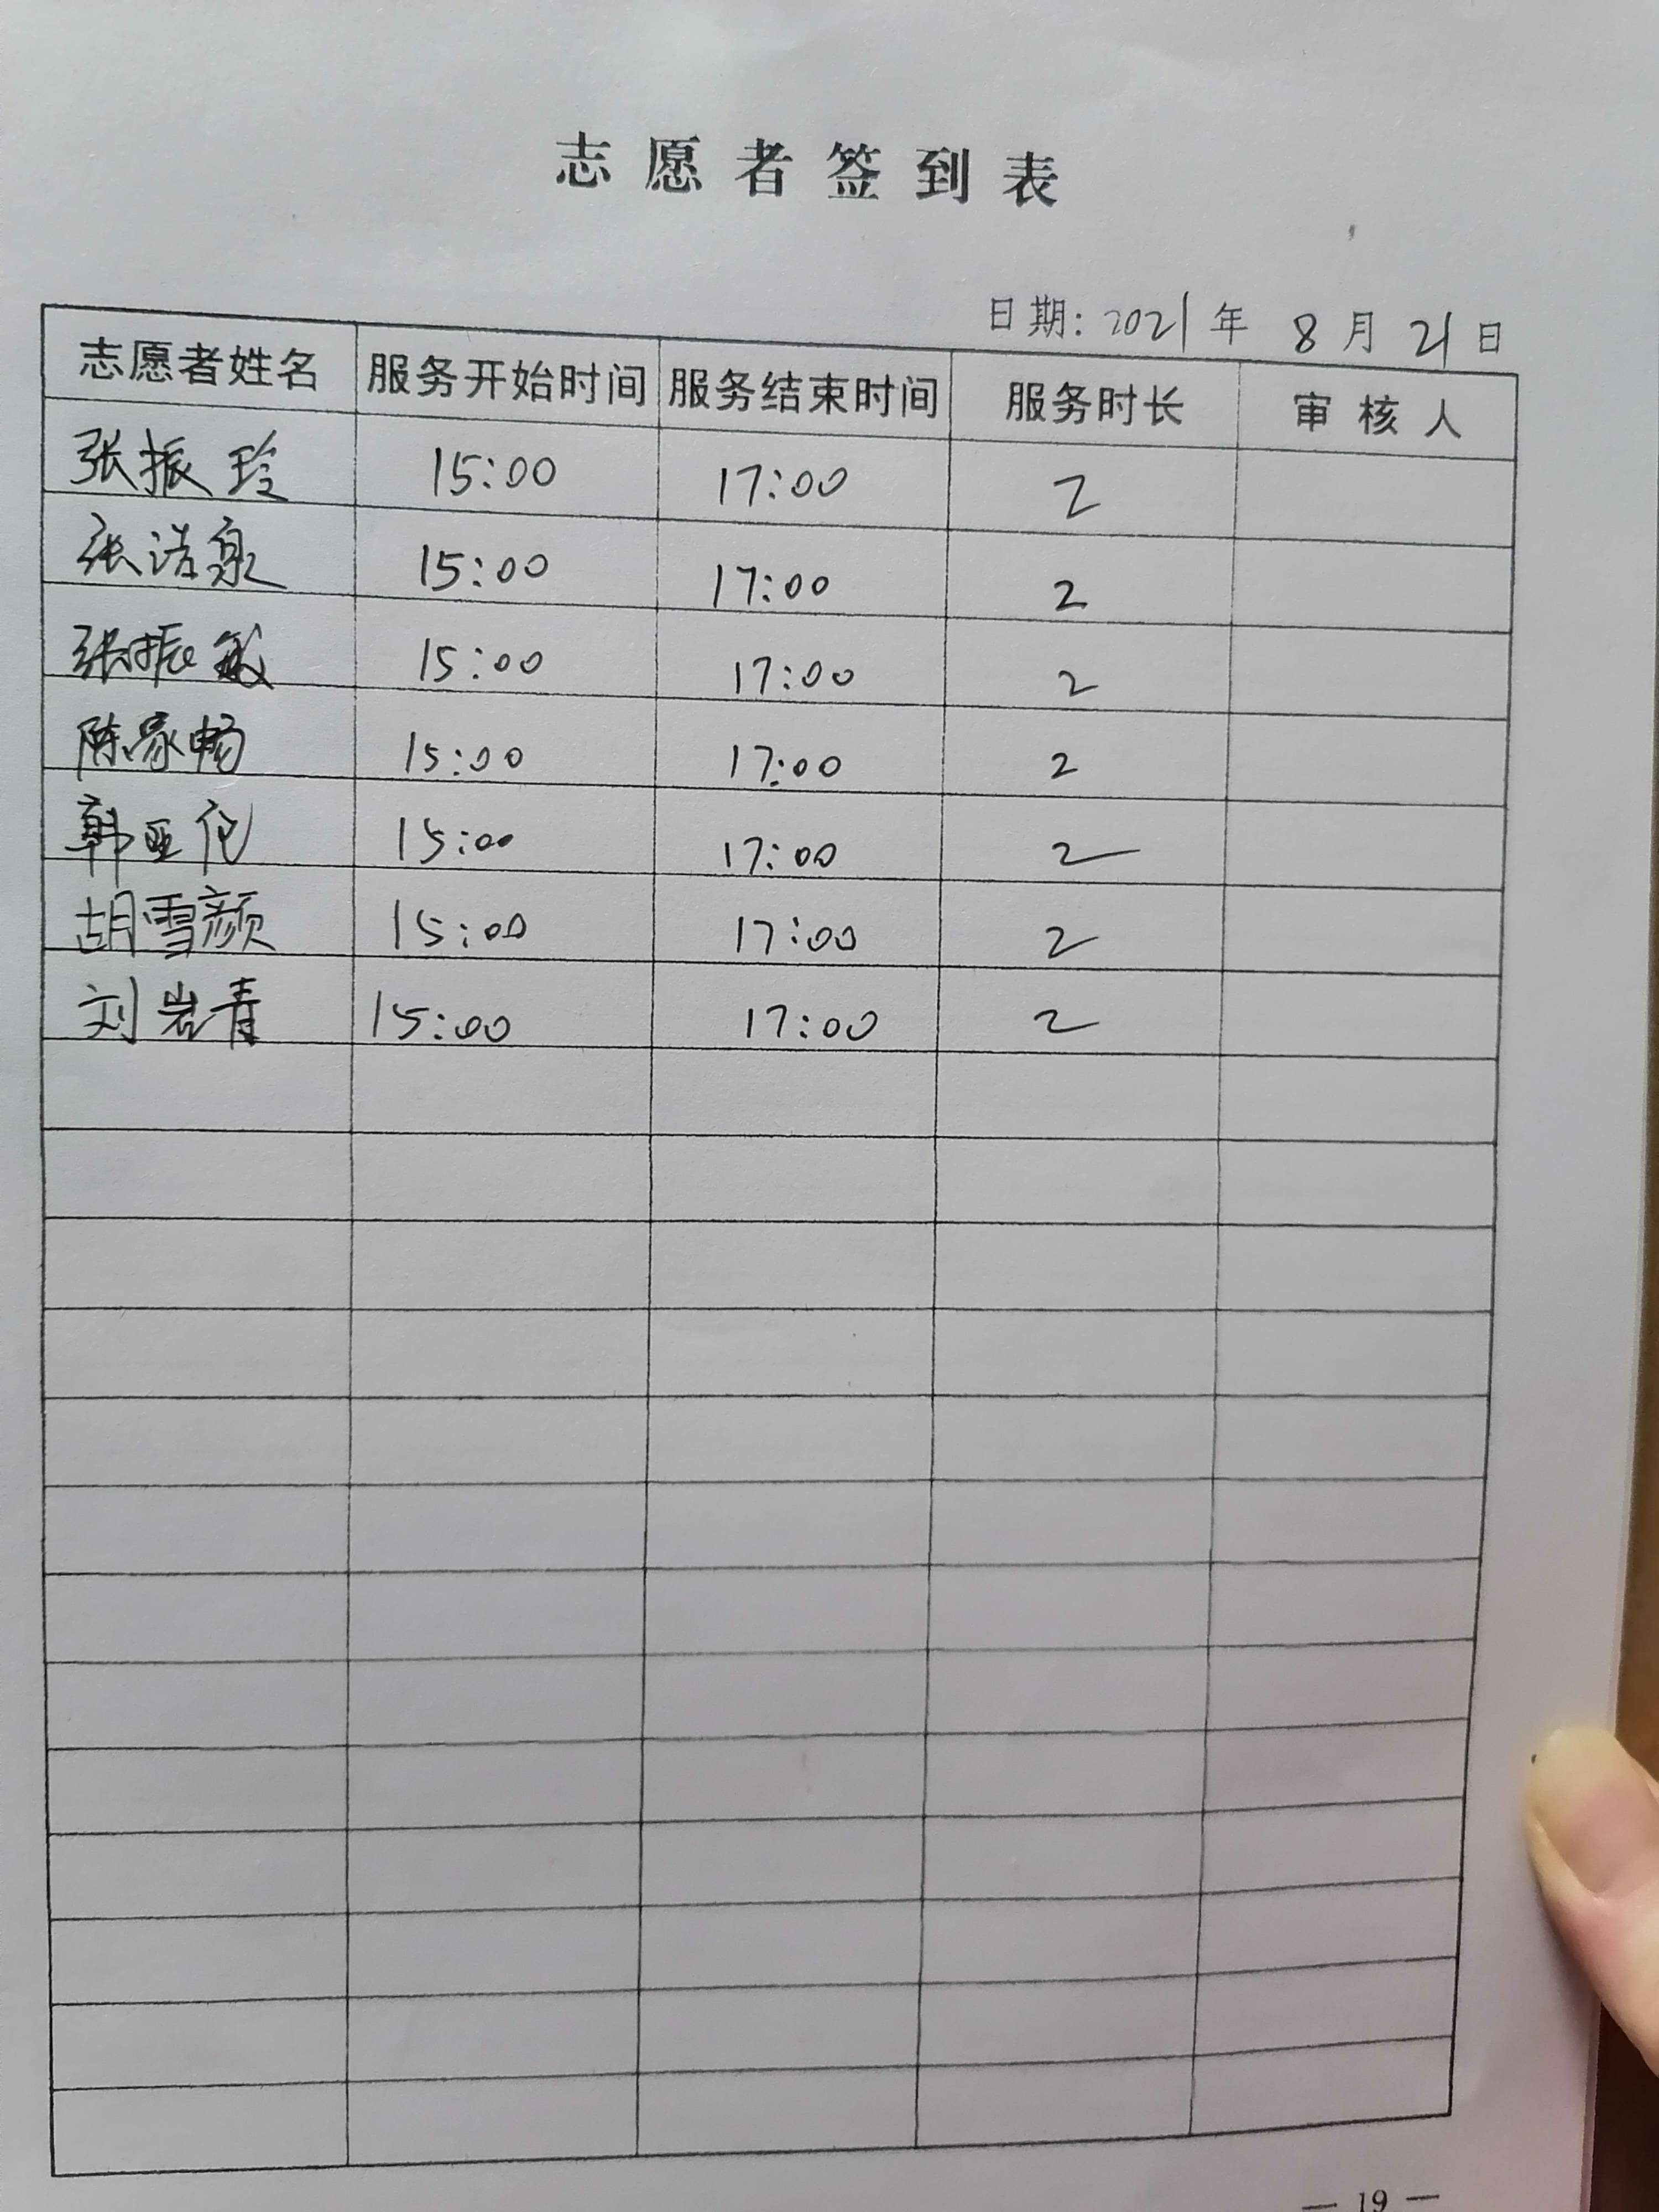 志愿者签到表
日期: 2021年 8月 21日
志愿者姓名 服务开始时间 服务结束时间 服务时长 审核人
张振玲 15:00 17:00 2
张洁泉 15:00 17:00 2
张振敏 15:00 17:00 2
陈家畅 15:00 17:00 2
韩亚伦 15:00 17:00 2
胡雪颜 15:00 17:00 2
刘岩青 15:00 17:00 2
— 19 —